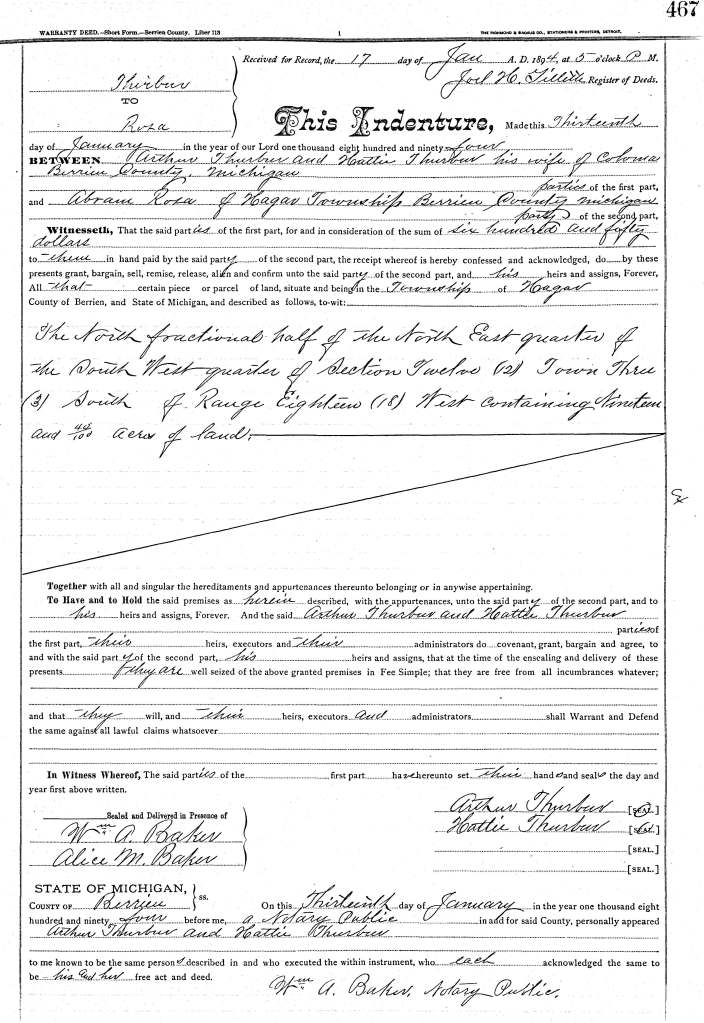 467
WARRANTY DEED.—Short Form.—Berrien County. Liber 113 1 THE RICHMOND & BACKUS CO., STATIONERS & PRINTERS, DETROIT.
Received for Record, the 17 day of Jan A. D. 1894, at 5 o'clock P M.
Thurbur
TO
Rosa
Joel H. Gillette Register of Deeds.
This Indenture, Made this Thirteenth
day of January in the year of our Lord one thousand eight hundred and ninety four
BETWEEN Arthur Thurbur and Hattie Thurbur his wife of Coloma
Berrien County, Michigan
parties of the first part,
and Abram Rosa of Hagar Township Berrien County Michigan
party of the second part,
Witnesseth, That the said parties of the first part, for and in consideration of the sum of six hundred and fifty
dollars
to them in hand paid by the said party of the second part, the receipt whereof is hereby confessed and acknowledged, do by these
presents grant, bargain, sell, remise, release, alien and confirm unto the said party of the second part, and his heirs and assigns, Forever,
All that certain piece or parcel of land, situate and being in the Township of Hagar
County of Berrien, and State of Michigan, and described as follows, to-wit:
The North fractional half of the North East quarter of
the South West quarter of Section Twelve (12) Town Three
(3) South of Range Eighteen (18) West containing Nineteen
and 44/100 acres of land.
Together with all and singular the hereditaments and appurtenances thereunto belonging or in anywise appertaining.
To Have and to Hold the said premises as herein described, with the appurtenances, unto the said party of the second part, and to
his heirs and assigns, Forever. And the said Arthur Thurbur and Hattie Thurbur
parties of
the first part, their heirs, executors and their administrators do covenant, grant, bargain and agree, to
and with the said party of the second part, his heirs and assigns, that at the time of the ensealing and delivery of these
presents they are well seized of the above granted premises in Fee Simple; that they are free from all incumbrances whatever;
and that they will, and their heirs, executors and administrators shall Warrant and Defend
the same against all lawful claims whatsoever
In Witness Whereof, The said parties of the first part have hereunto set their hands and seals the day and
year first above written.
Sealed and Delivered in Presence of
Wm A. Baker
Alice M. Baker
Arthur Thurbur [SEAL.]
Hattie Thurbur [SEAL.]
[SEAL.]
[SEAL.]
STATE OF MICHIGAN,
COUNTY OF Berrien ss. On this Thirteenth day of January in the year one thousand eight
hundred and ninety four before me, a Notary Public in and for said County, personally appeared
Arthur Thurbur and Hattie Thurbur
to me known to be the same persons described in and who executed the within instrument, who each acknowledged the same to
be his and her free act and deed.
Wm A. Baker, Notary Public.